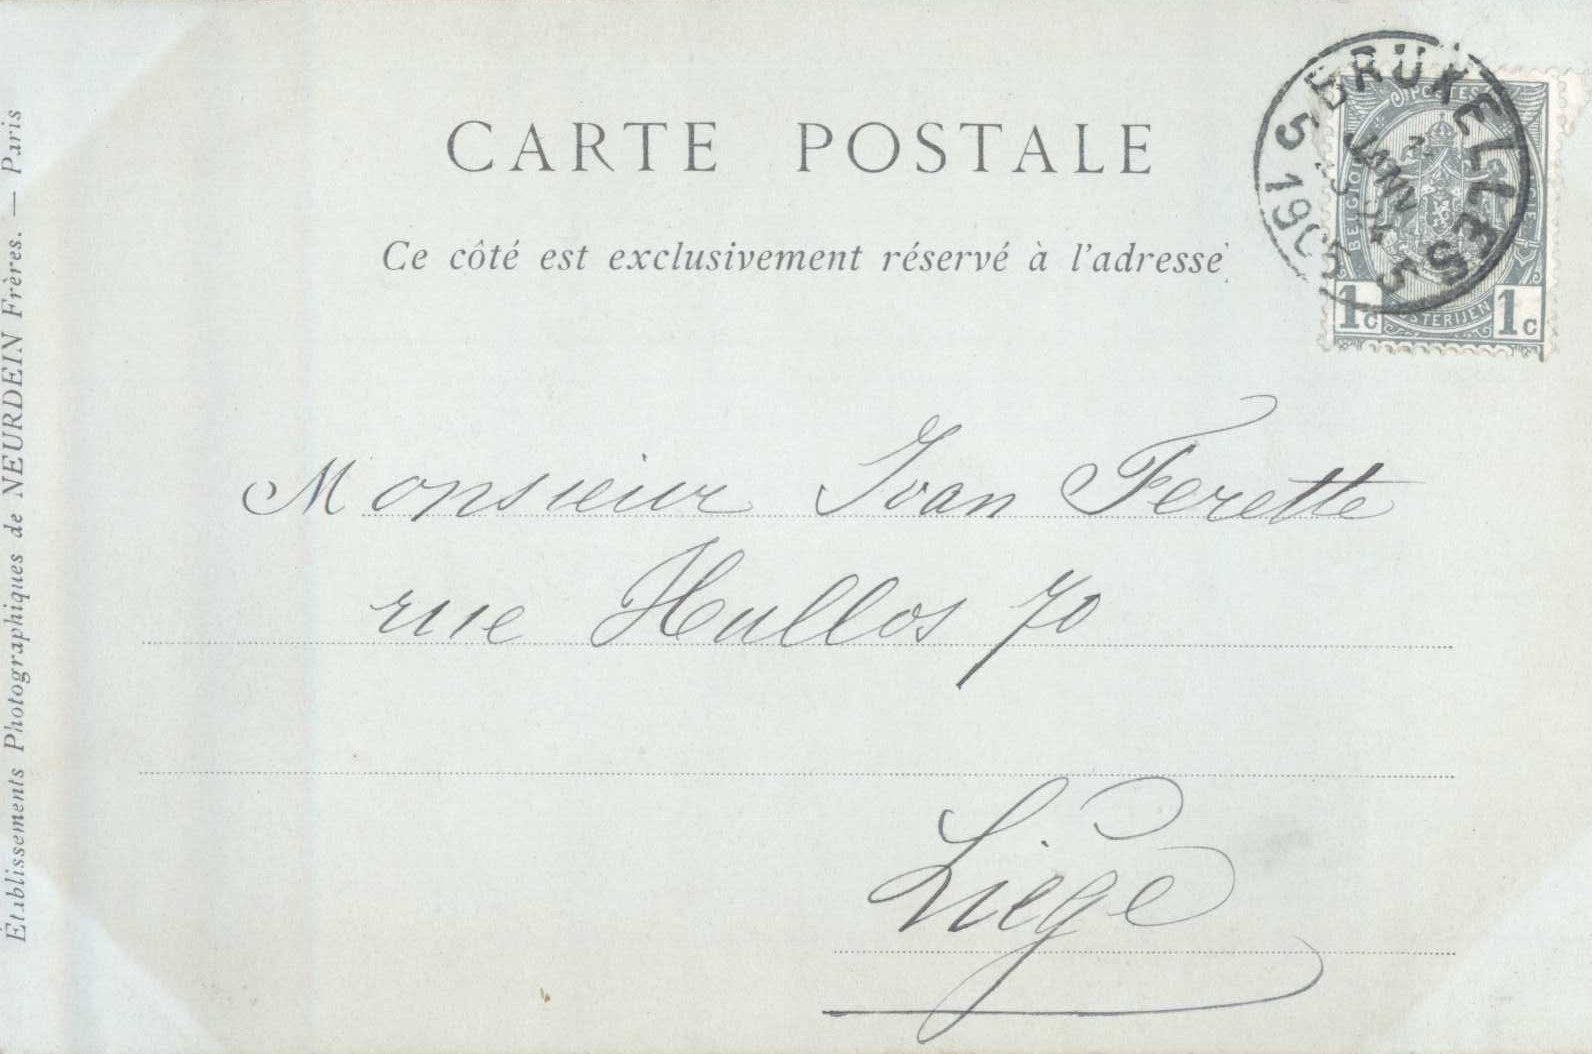 CARTE POSTALE
Ce côté est exclusivement réservé à l'adresse
BRUXELLES 5
5 1905
JANV
POSTES
BELGIQUE
1c 1c
Monsieur Ivan Ferette
rue Hullos 70
Liège
Établissements Photographiques de NEURDEIN Frères. — Paris